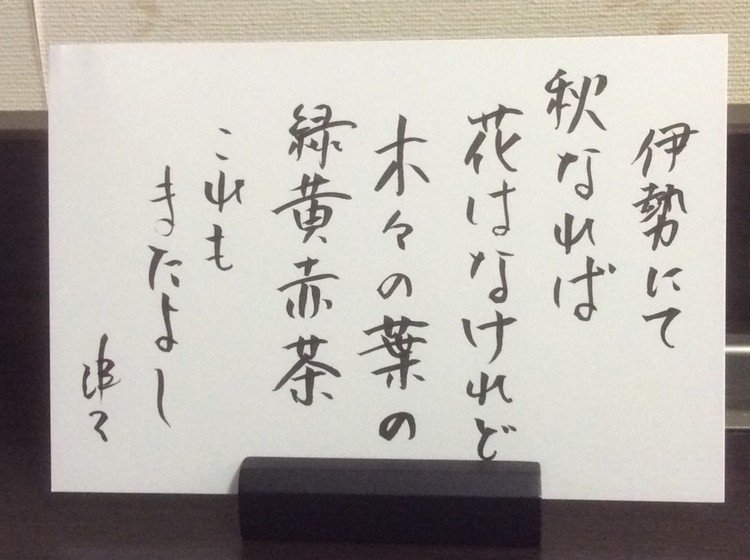 伊勢にて
秋なれば
花はなけれど
木々の葉の
緑黄赤茶
これも
またよし